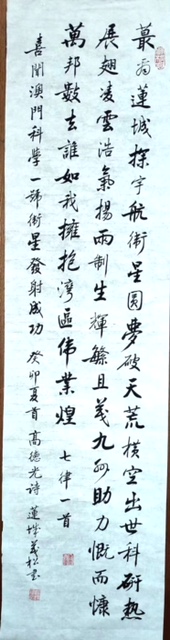 蕞尔蓮城探宇航衛星圓夢破天荒橫空出世科研熱
展翅凌雲浩氣揚兩制生輝且義九州助力慨而慷
萬邦數去誰如我擁抱灣區伟業煌 七律一首
喜聞澳門科學一號衛星發射成功 癸卯夏首 高德光詩 蓮城義松書